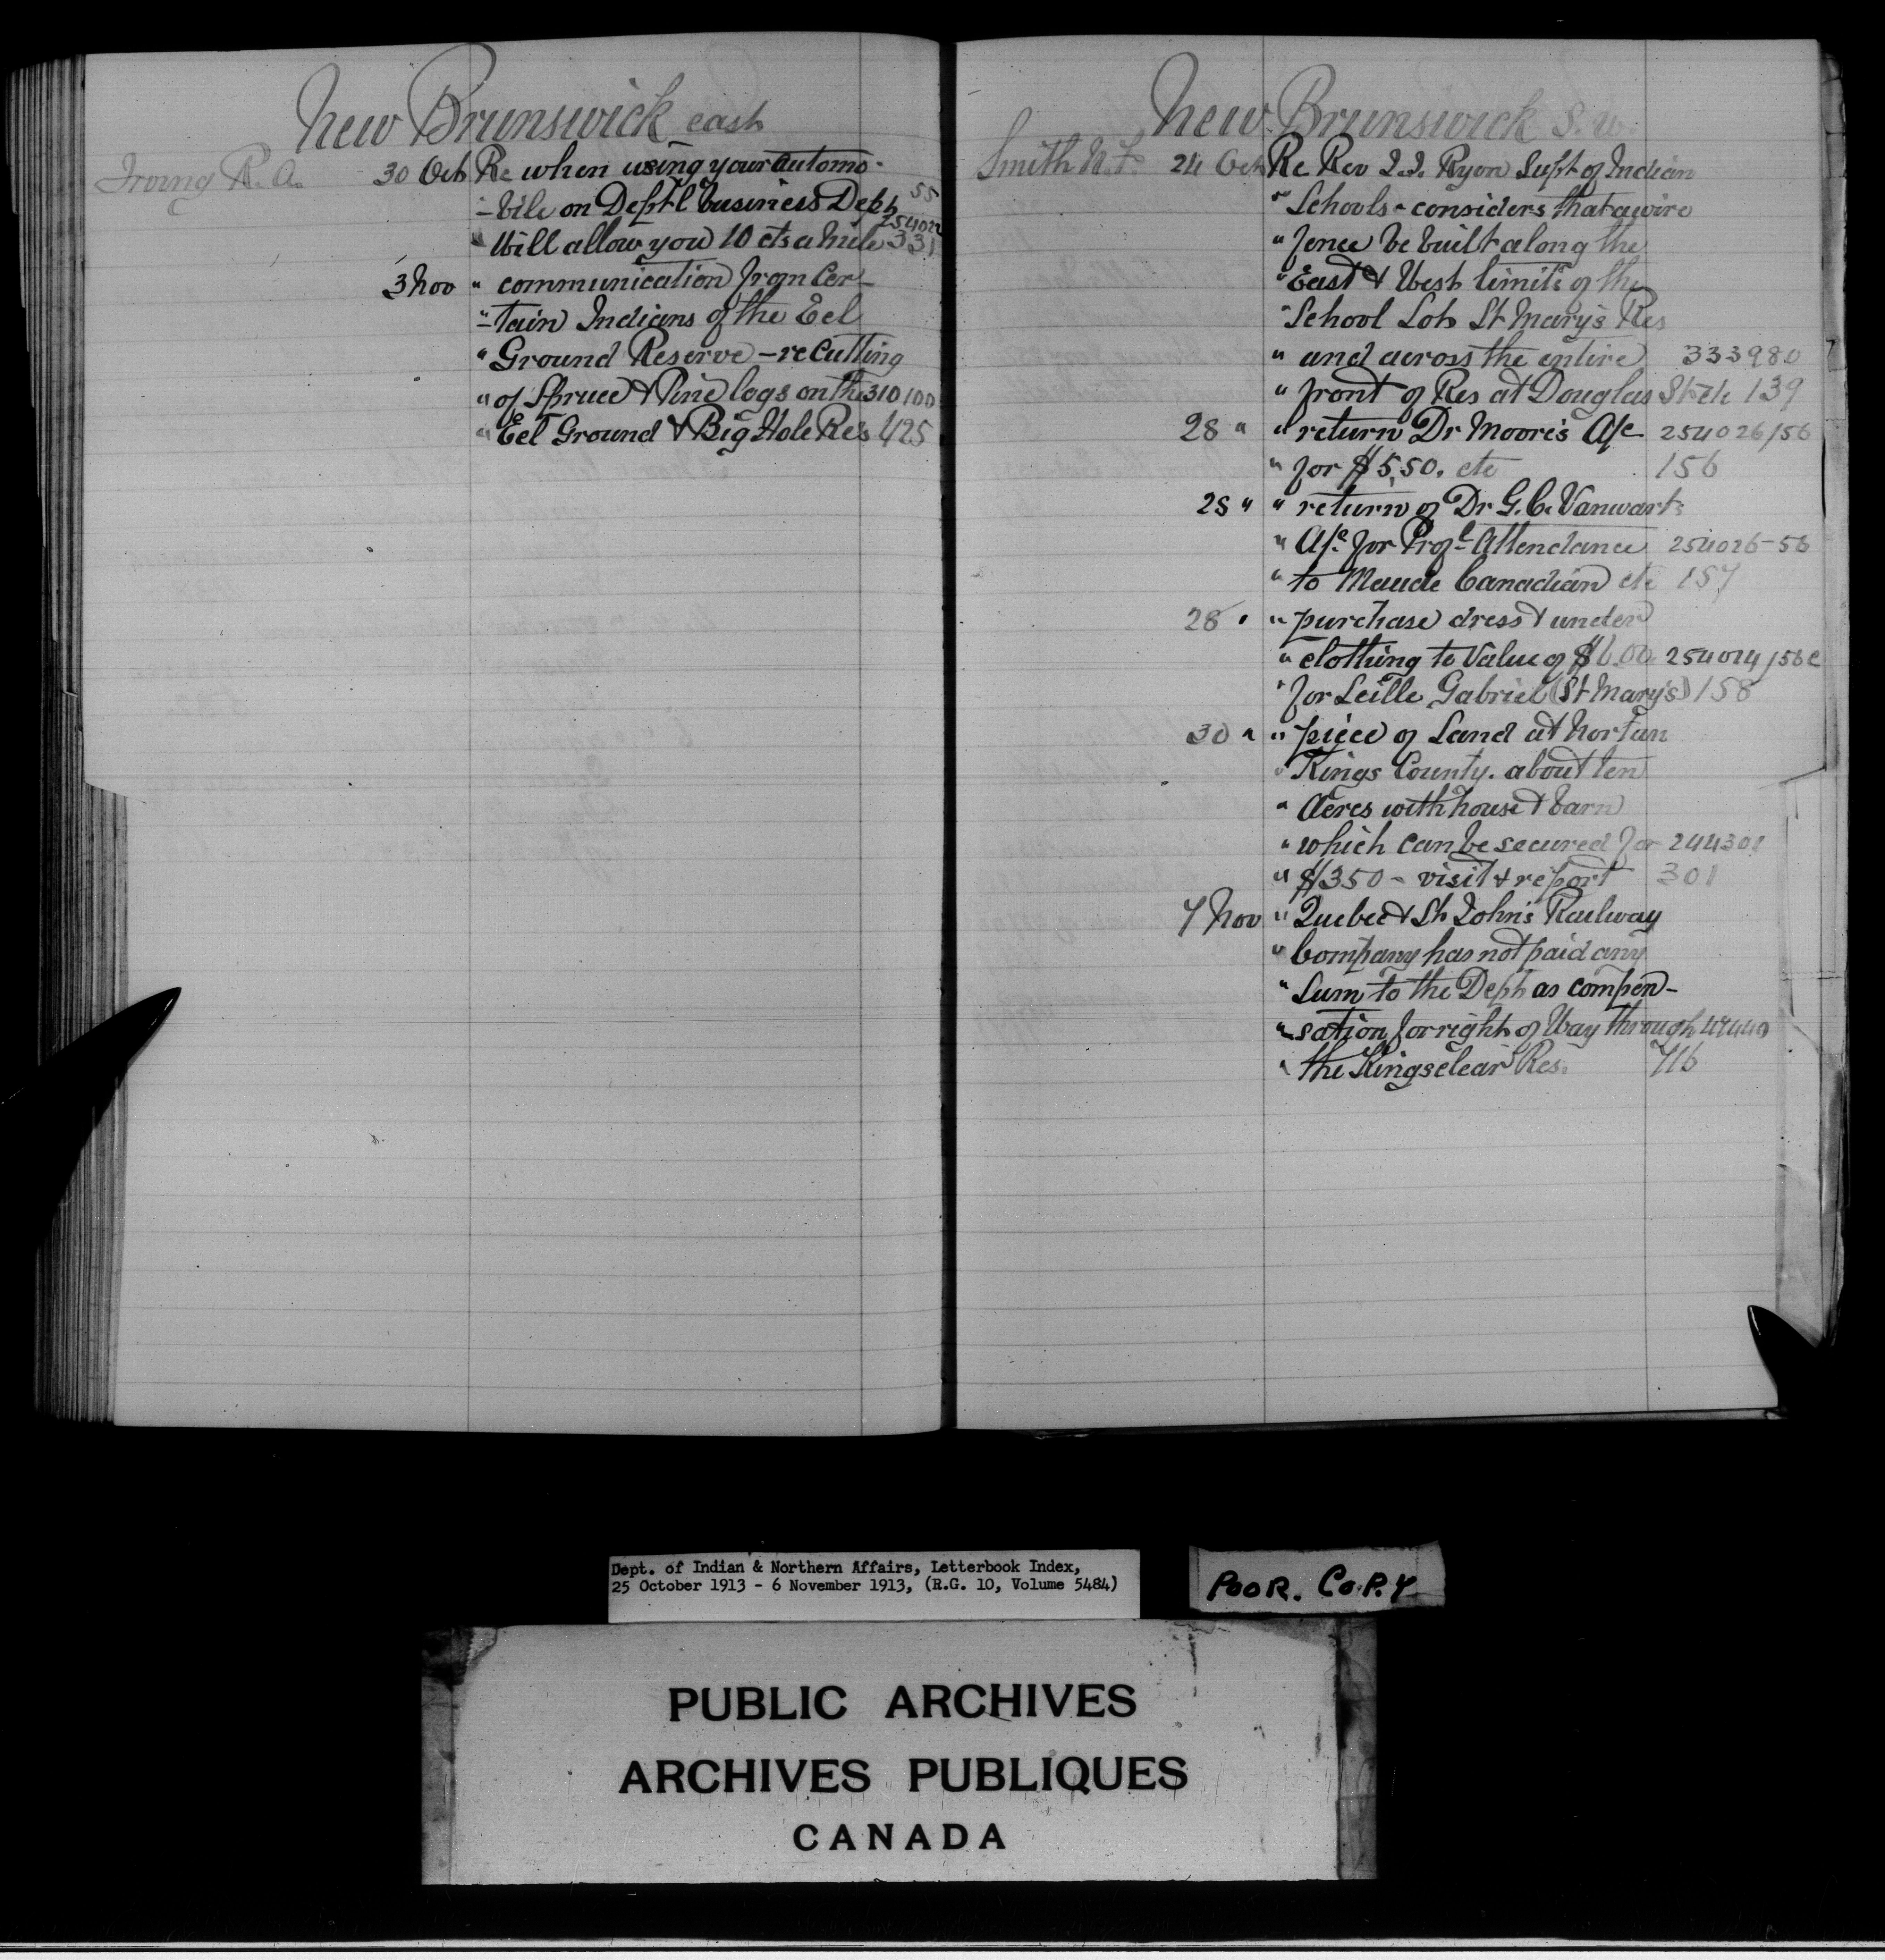 New Brunswick east
Irving R. A. 30 Oct Re when using your automo-
-bile on Dept'l business Dept 55
" Will allow you 10 cts a mile 254022 331
3 Nov " communication from Cer-
"-tain Indians of the Eel
" Ground Reserve - re Cutting
" of Spruce & Pine logs on the 310100
" Eel Ground & Big Hole Res 425
New Brunswick S. W.
Smith N. F. 24 Oct Re Rev J. J. Ryon Supt of Indian
" Schools - considers that a wire
" fence be built along the
" East & West limits of the
" School Lot St Mary's Res
" and across the entire 333980
" front of Res at Douglas Sketch 139
28 " " return Dr Moore's A/c 254026/56
" for $5.50. etc 156
28 " " return of Dr G. C. Vanwart's
" A/c for Prof'l Attendance 254026-56
" to Maude Canadian etc 157
28 " " purchase dress & under
" clothing to Value of $6.00 254014/56c
" for Leille Gabriel (St Mary's) 158
30 " " piece of Land at Nortan
" Kings County. about ten
" Acres with house & barn
" which can be secured for 244301
" $350 - visit & report 301
7 Nov " Quebec & St John's Railway
" Company has not paid any
" Sum to the Dept as compen-
"-sation for right of Way through
" the Kingsclear Res. 716
Dept. of Indian & Northern Affairs, Letterbook Index,
25 October 1913 - 6 November 1913, (R.G. 10, Volume 5484)
POOR. COPY
PUBLIC ARCHIVES
ARCHIVES PUBLIQUES
CANADA